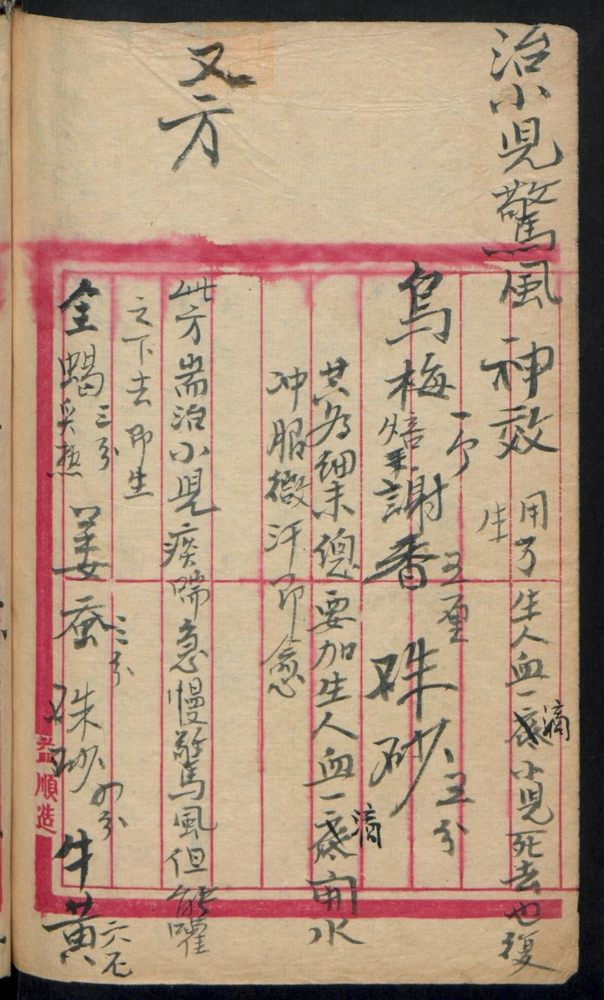 治小児驚風神效 用了生人血一滴小児死去也復
生
烏梅一个焙干謝香五厘硃砂五分
共為細末總要加生人血一滴開水
冲服微汗即愈
又方
此方耑治小児痰喘急慢驚風但能嚾
之下去即生
全蝎三分炙焦 姜蚕三分 硃砂四分 牛黄六厘
益順造